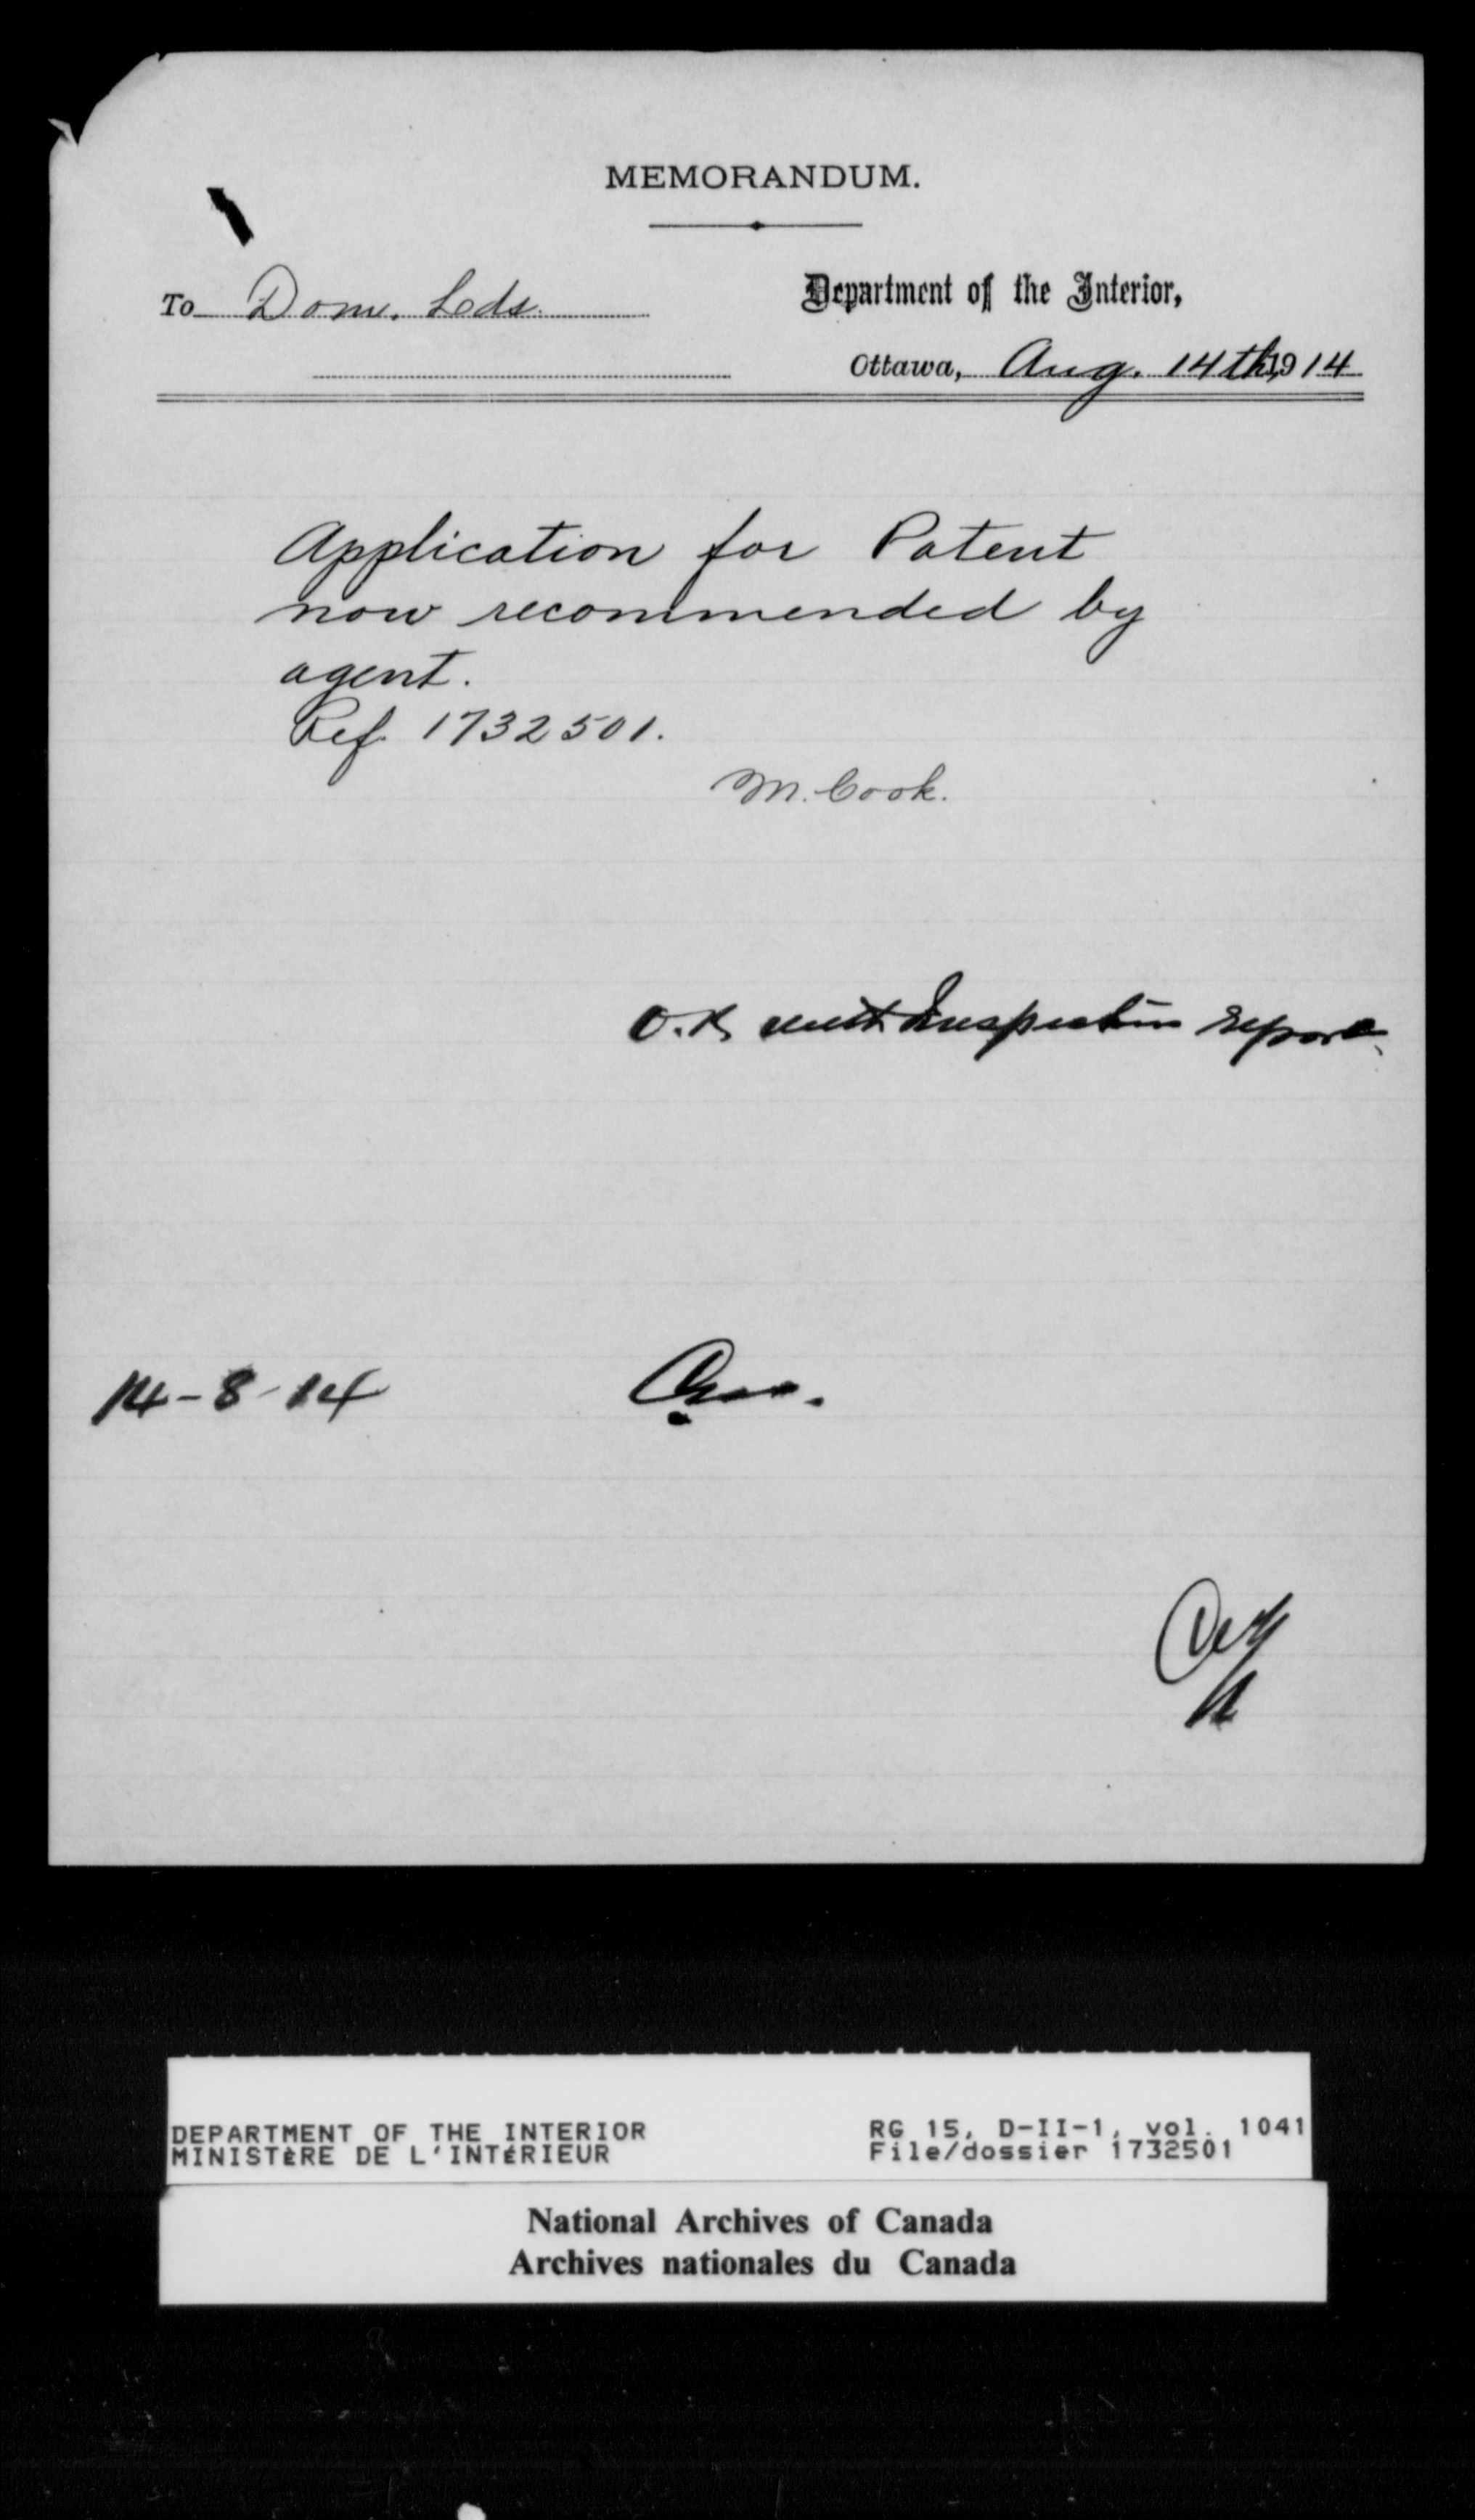 MEMORANDUM.
To Dom. Lds.
Department of the Interior,
Ottawa, Aug. 14th, 1914
Application for Patent
now recommended by
agent.
Ref. 1732501.
M. Cook.
O.K. Inspection report
14-8-14
DEPARTMENT OF THE INTERIOR
MINISTÈRE DE L'INTÉRIEUR
RG 15, D-II-1, vol. 1041
File/dossier 1732501
National Archives of Canada
Archives nationales du Canada